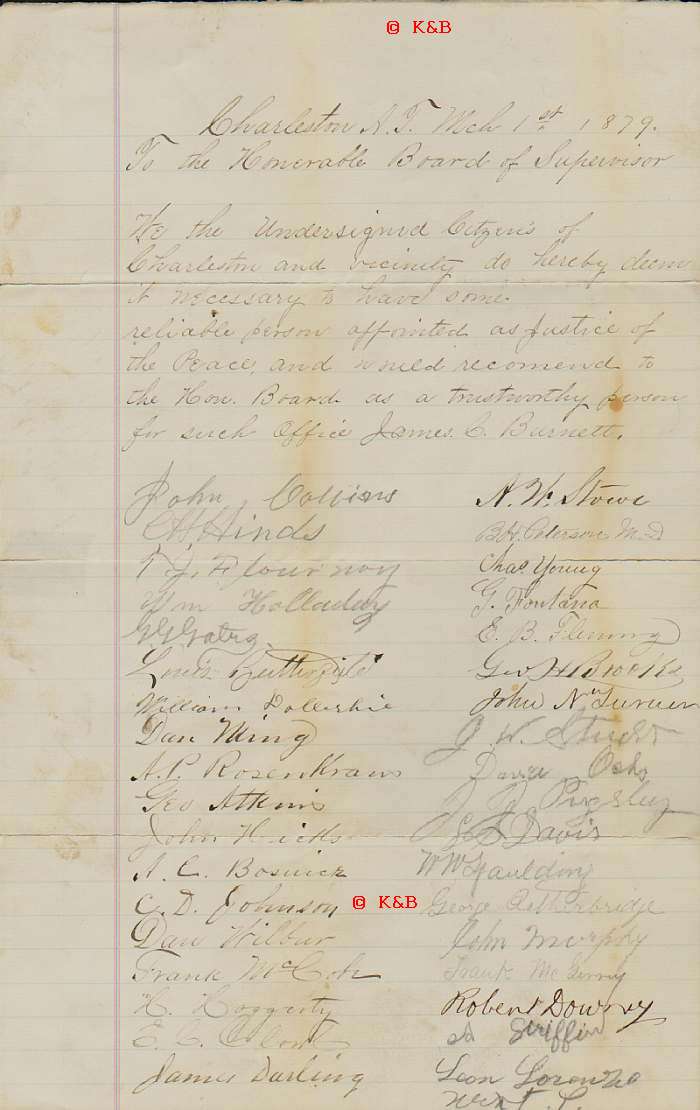 © K&B
Charleston A.T. Mch 1st 1879.
To the Honerable Board of Supervisor
We the Undersigned Citizens of
Charleston and vicinity do hereby deem
it necessary to have some
reliable person appointed as Justice of
the Peace, and would recomend to
the Hon. Board as a trustworthy person
for such Office James C. Burnett.
John Collins
Hinds
Flournoy
Wm Holladay
Louis
William
Dan Ming
A.P. RosenKrans
Geo Atkins
John Hicks
A. C. Bosnick
C. D. Johnson
Dan Wilbur
Frank
H. Haggerty
E. C.
James Darling
N. W. Stowe
Peterson M.D
Chas Young
G. Fontana
E. B. Fleming
Geo H Brooks
John N Turner
J. W.
David Ochs
Pugsley
Davis
W W Spaulding
George
John Murphy
Frank
Robert Downey
Griffin
Leon
© K&B